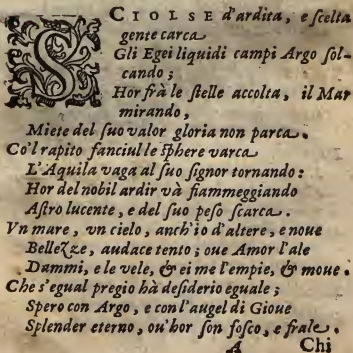 SCIOLSE d'ardita, e ſcelta
gente carca
Gli Egei liquidi campi Argo ſol-
cando;
Hor frà le ſtelle accolta, il Mar
mirando,
Miete del ſuo valor gloria non parca.
Co'l rapito fanciul le ſphere varca
L'Aquila vaga al ſuo ſignor tornando:
Hor del nobil ardir và fiammeggiando
Aſtro lucente, e del ſuo peſo ſcarca.
Vn mare, vn cielo, anch'io d'altere, e noue
Bellezze, audace tento; oue Amor l'ale
Dammi, e le vele, & ei me l'empie, & moue.
Che s'egual pregio hà deſiderio eguale;
Spero con Argo, e con l'augel di Gioue
Splender eterno, ou'hor ſon foſco, e frale.
A Chi